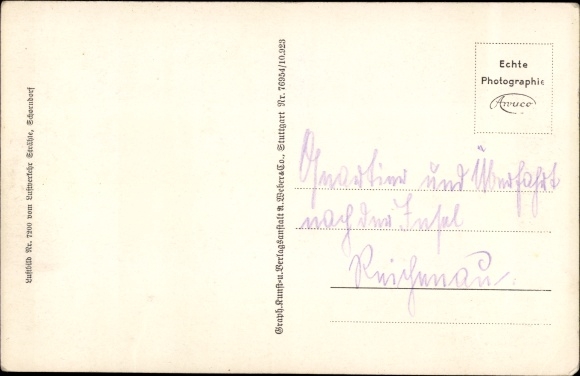 Luftbild Nr. 7200 vom Luftverkehr Strähle, Schorndorf
Graph. Kunst-u. Verlagsanstalt A. Weber & Co., Stuttgart Nr. 76954/10,923
Echte
Photographie
Awuco
Quartier und Überfahrt
nach der Insel
Reichenau.